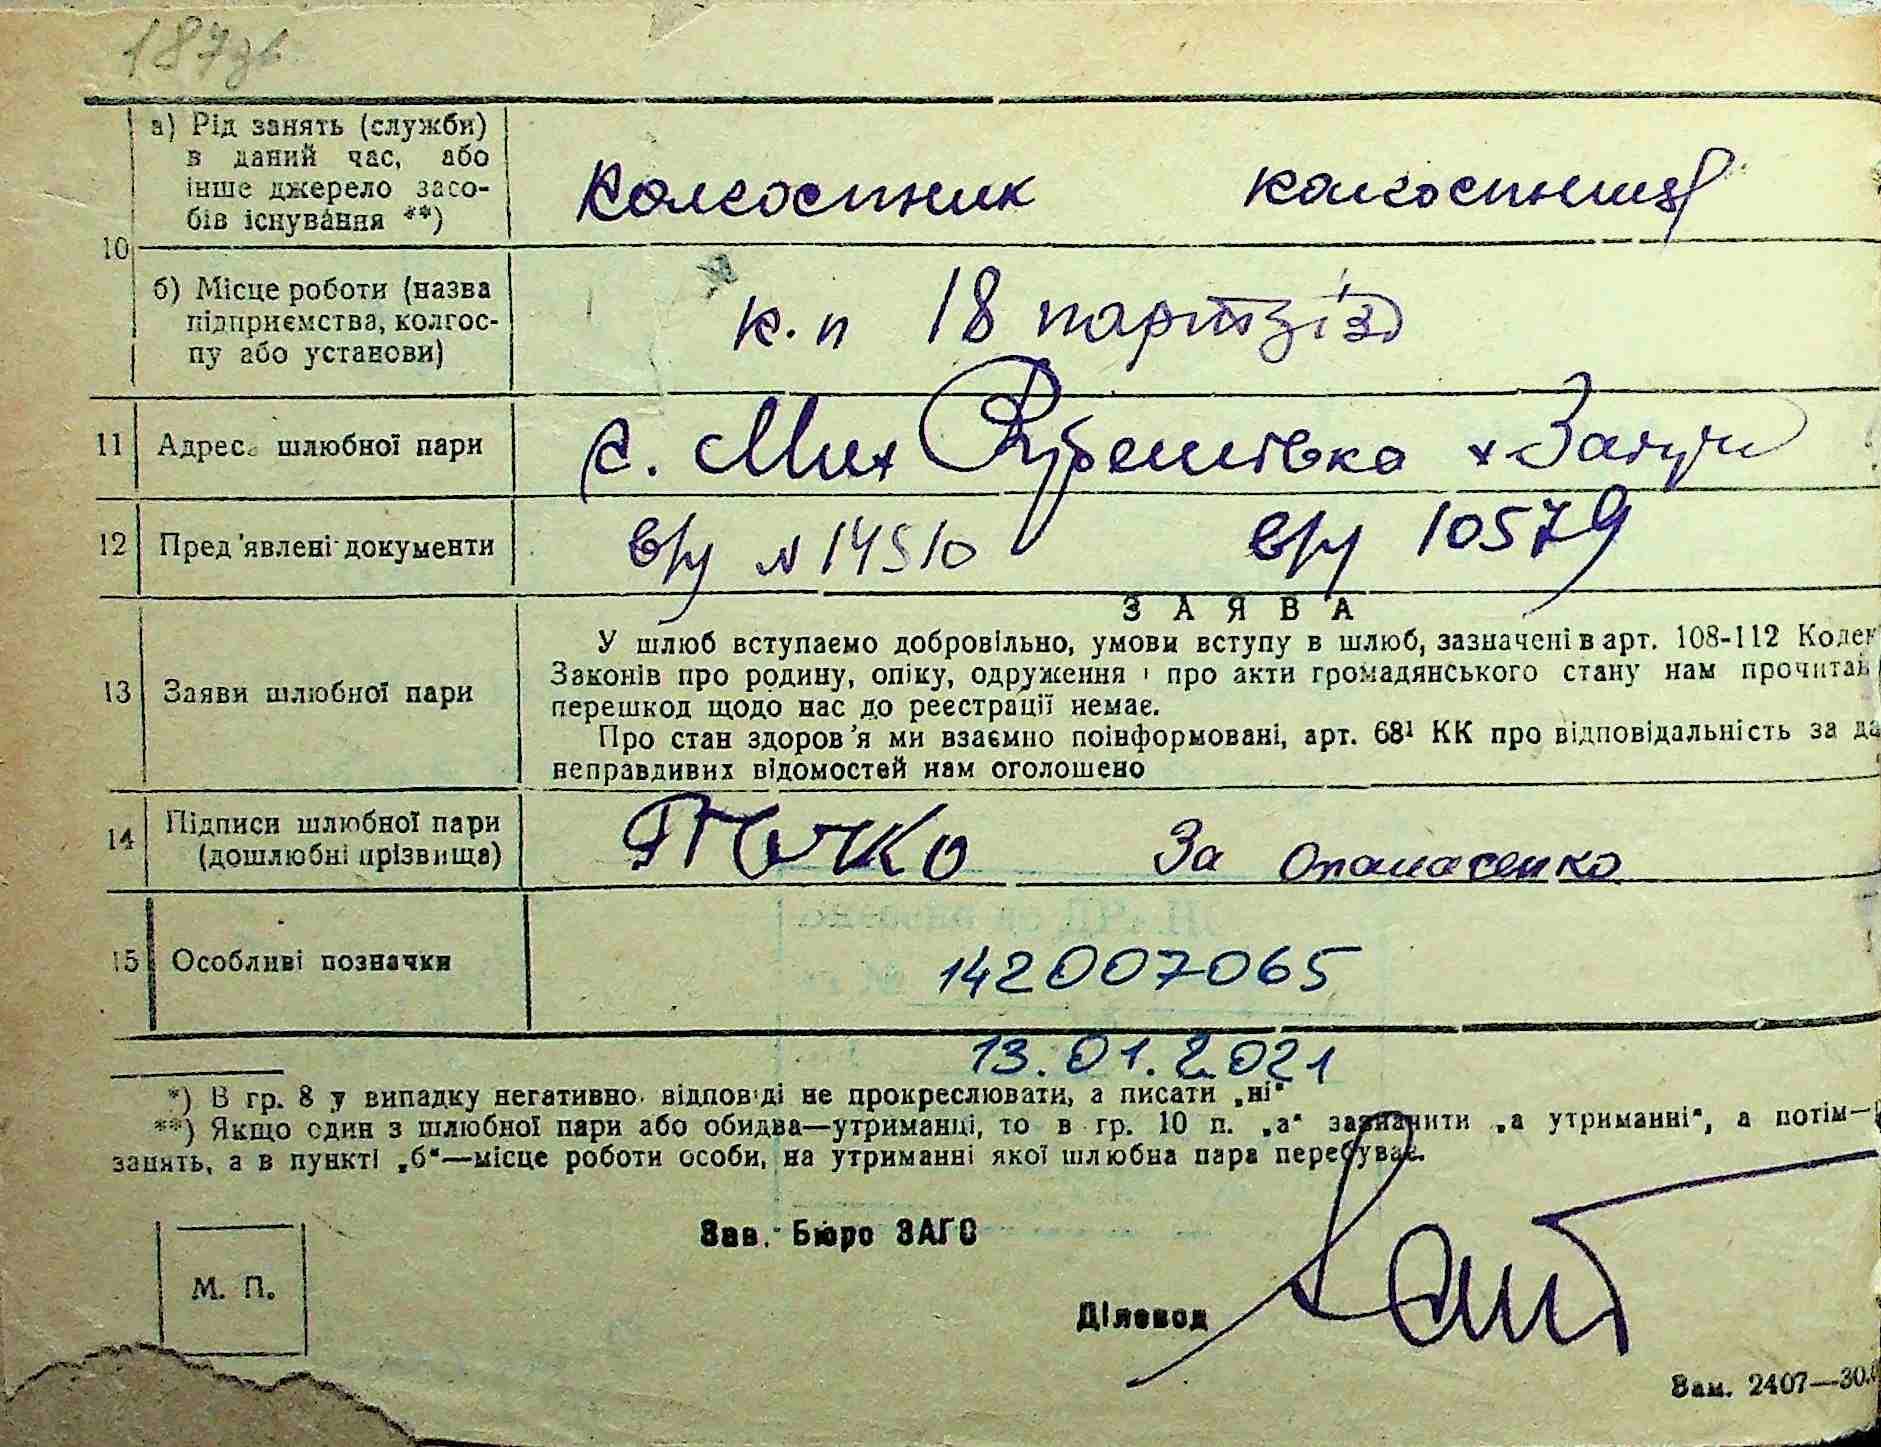 187зв
а) Рід занять (служби)
в даний час, або
інше джерело засо-
бів існування **)
Колгоспник колгоспниця
10
б) Місце роботи (назва
підприємства, колгос-
пу або установи)
к.п 18 партзїзд
11 Адреса шлюбної пари
с. Мих Рубешівка х
12 Пред'явлені документи
№ 14510 10579
ЗАЯВА
13 Заяви шлюбної пари
У шлюб вступаємо добровільно, умови вступу в шлюб, зазначені в арт. 108-112 Кодек
Законів про родину, опіку, одруження і про акти громадянського стану нам прочитан
перешкод щодо нас до реєстрації немає.
Про стан здоров'я ми взаємно поінформовані, арт. 68¹ КК про відповідальність за да
неправдивих відомостей нам оголошено
14 Підписи шлюбної пари
(дошлюбні прізвища)
За Опанасенко
15 Особливі позначки
142007065
13.01.2021
*) В гр. 8 у випадку негативно відповіді не прокреслювати, а писати „ні“
**) Якщо один з шлюбної пари або обидва—утриманці, то в гр. 10 п. „а“ зазначити „а утриманні“, а потім—
занять, а в пункті „б“—місце роботи особи, на утриманні якої шлюбна пара перебуває.
Зав. Бюро ЗАГС
М. П.
Діловод
Зам. 2407—30.